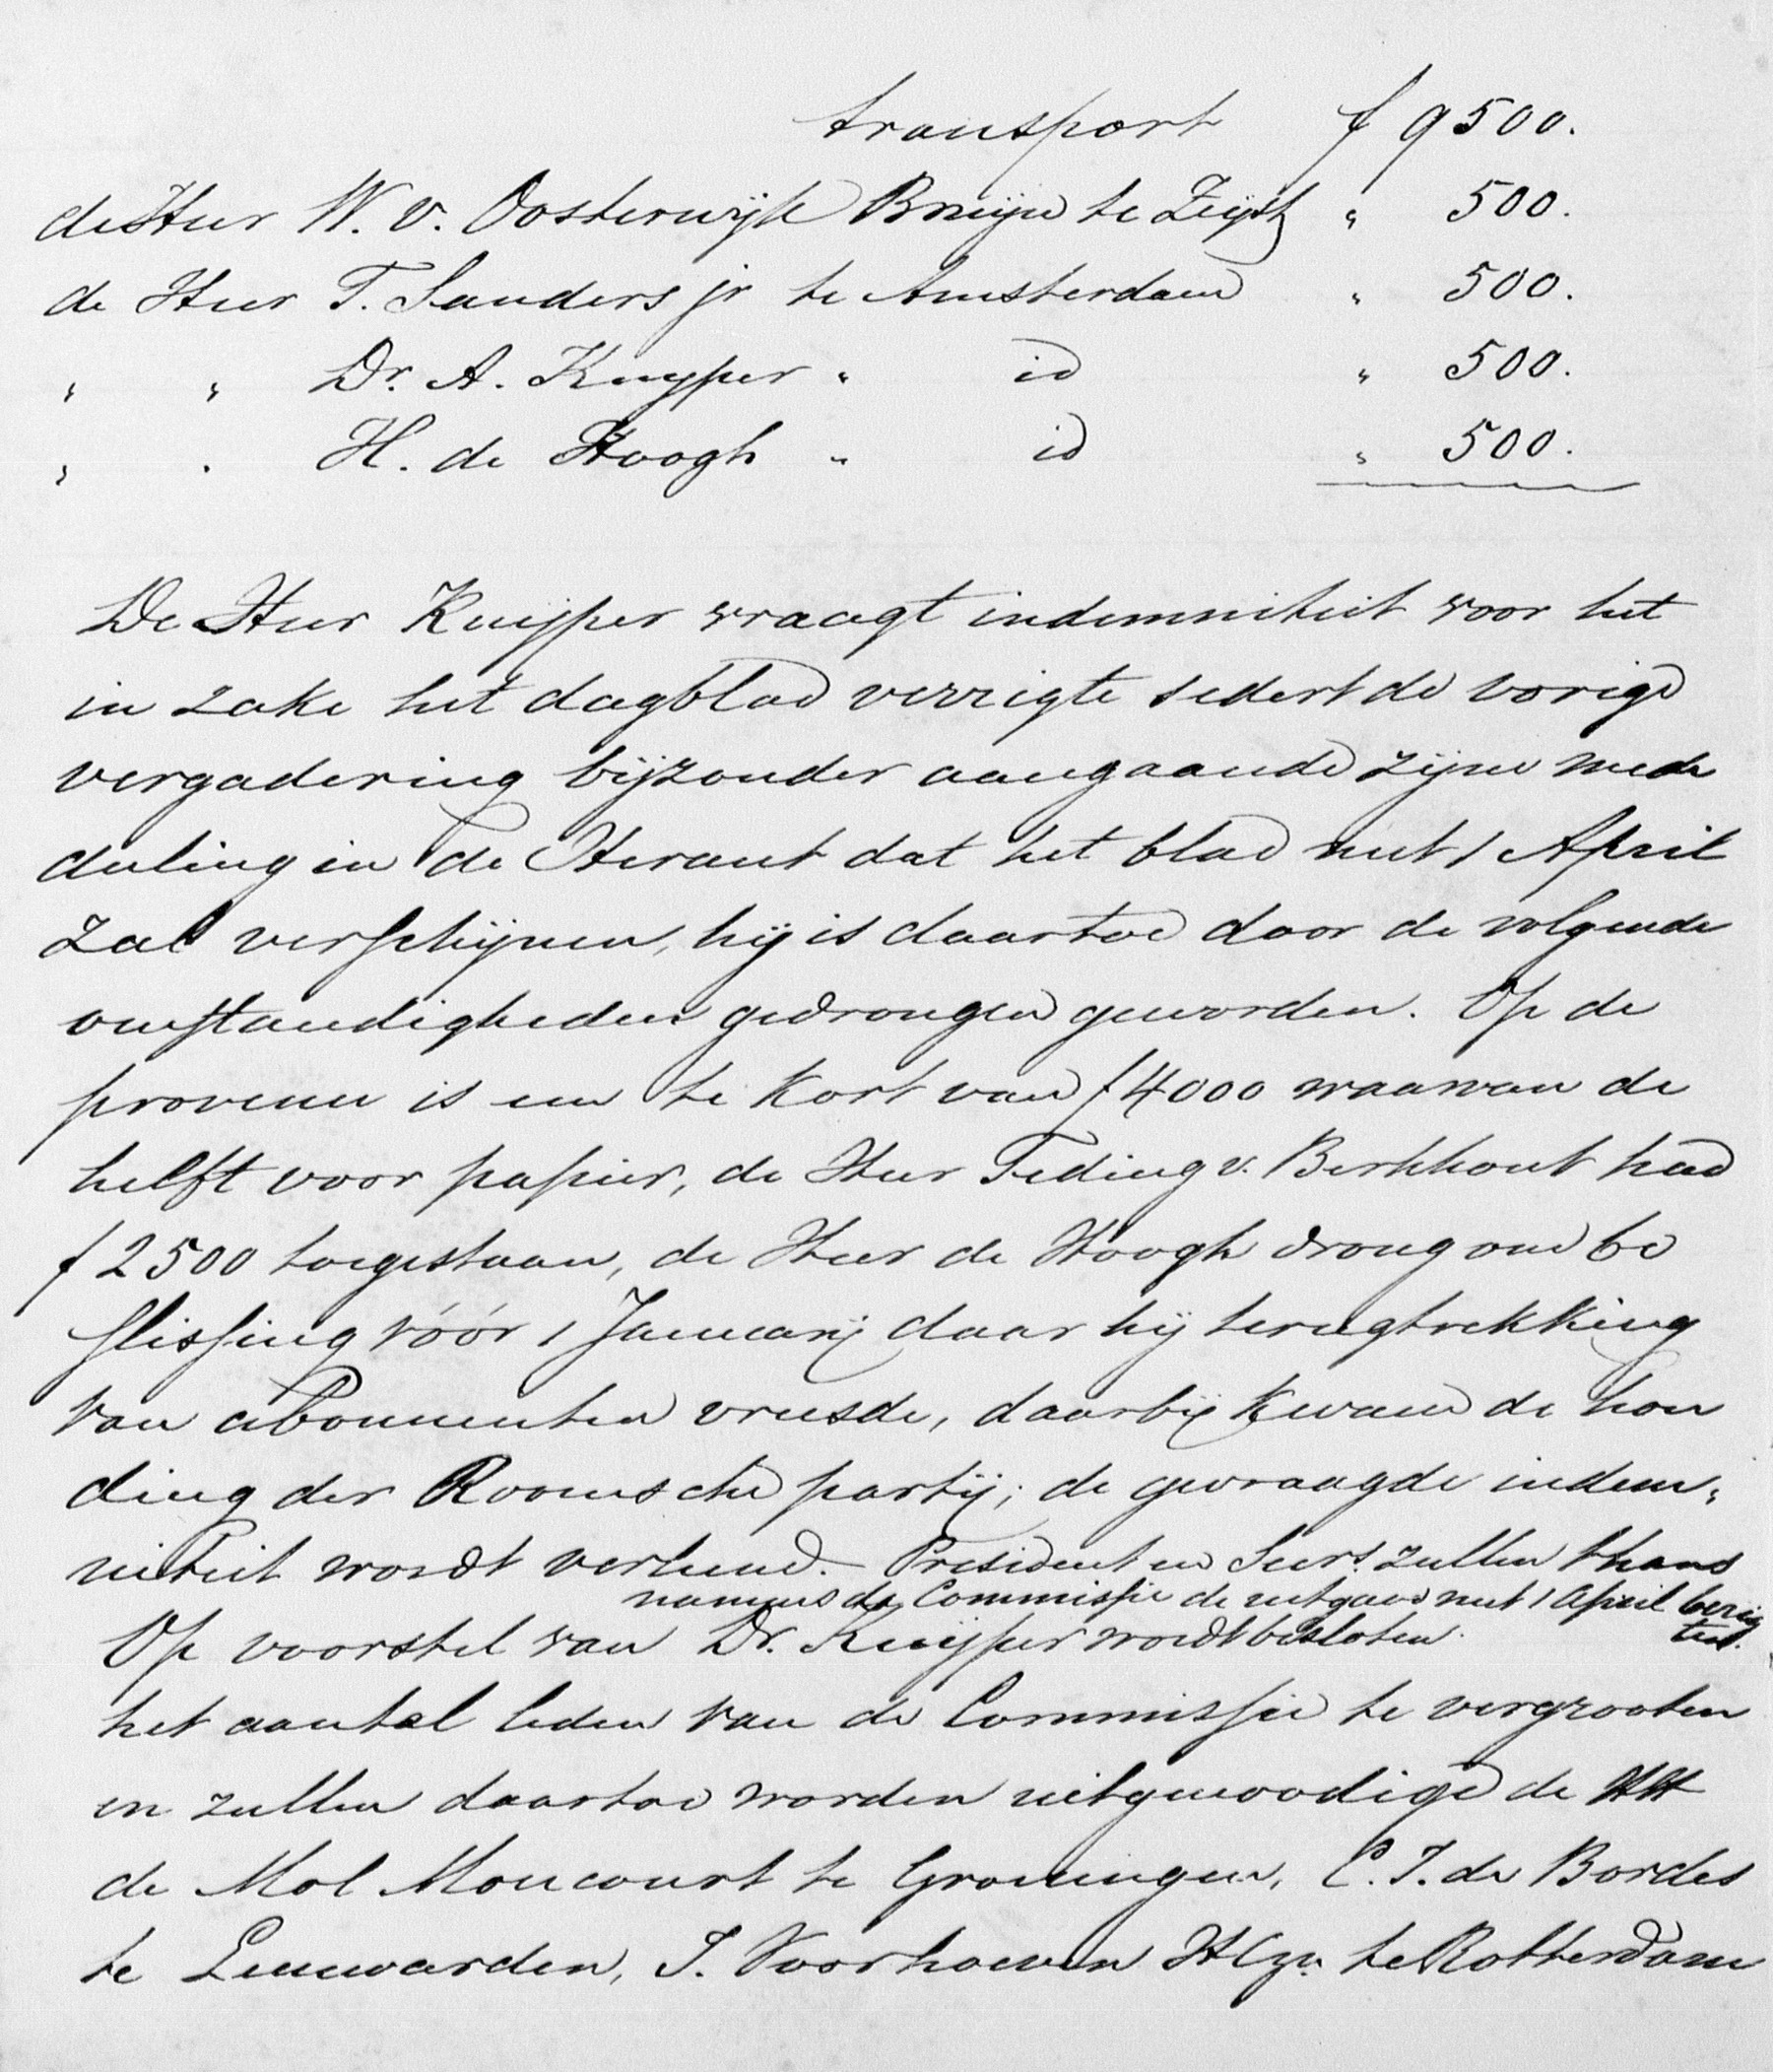 transport f 9500.
de Heer W. v. Oosterwijk Bruijn te Zeijst " 500.
de Heer T. Sanders jr te Amsterdam " 500.
" " Dr. A. Kuyper " id " 500.
" " H. de Hoogh " id " 500.
De Heer Kuijper vraagt indemniteit voor het
in zake het dagblad verrigte sedert de vorige
vergadering bijzonder aangaande zijne mede
deeling in de Heraut dat het blad met 1 April
zal verschijnen, hij is daartoe door de volgende
omstandigheden gedrongen geworden. Op de
provenu is een te kort van f 4000 waarvan de
helft voor papier, de Heer Teding v. Berkhout had
f 2500 toegestaan, de Heer de Hoogh drong om be
slissing vóór 1 Januarij daar hij terugtrekking
van abonnenten vreesde, daarbij kwam de hou
ding der Roomsche partij; de gevraagde indem„
niteit wordt verleend. President en Secrs. zullen thans
namens de Commissie de uitgave met 1 April berig
ten.
Op voorstel van Dr. Kuijper wordt besloten
het aantal leden van de Commissie te vergrooten
en zullen daartoe worden uitgenoodigd de HH
de Mol Moncourt te Groningen, C. J. de Bordes
te Leeuwarden, J. Voorhoeven HCzn. te Rotterdam